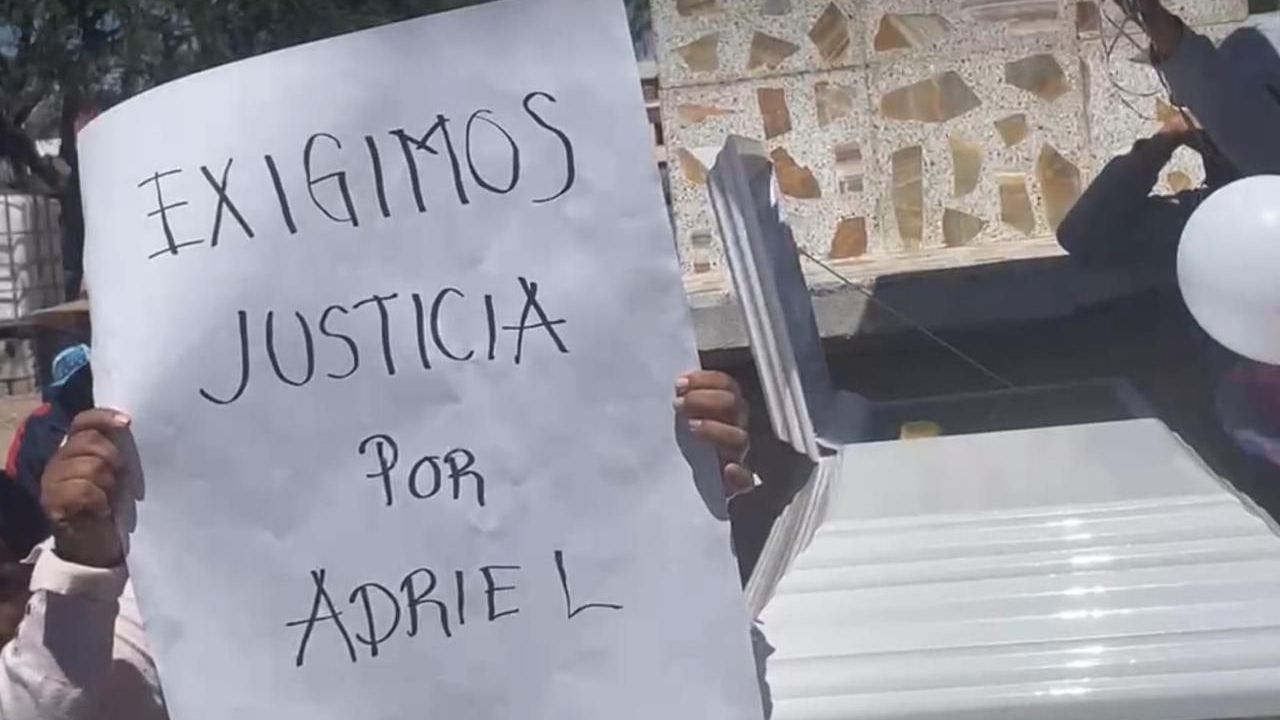 EXIGIMOS
JUSTICIA
POR
ADRIEL